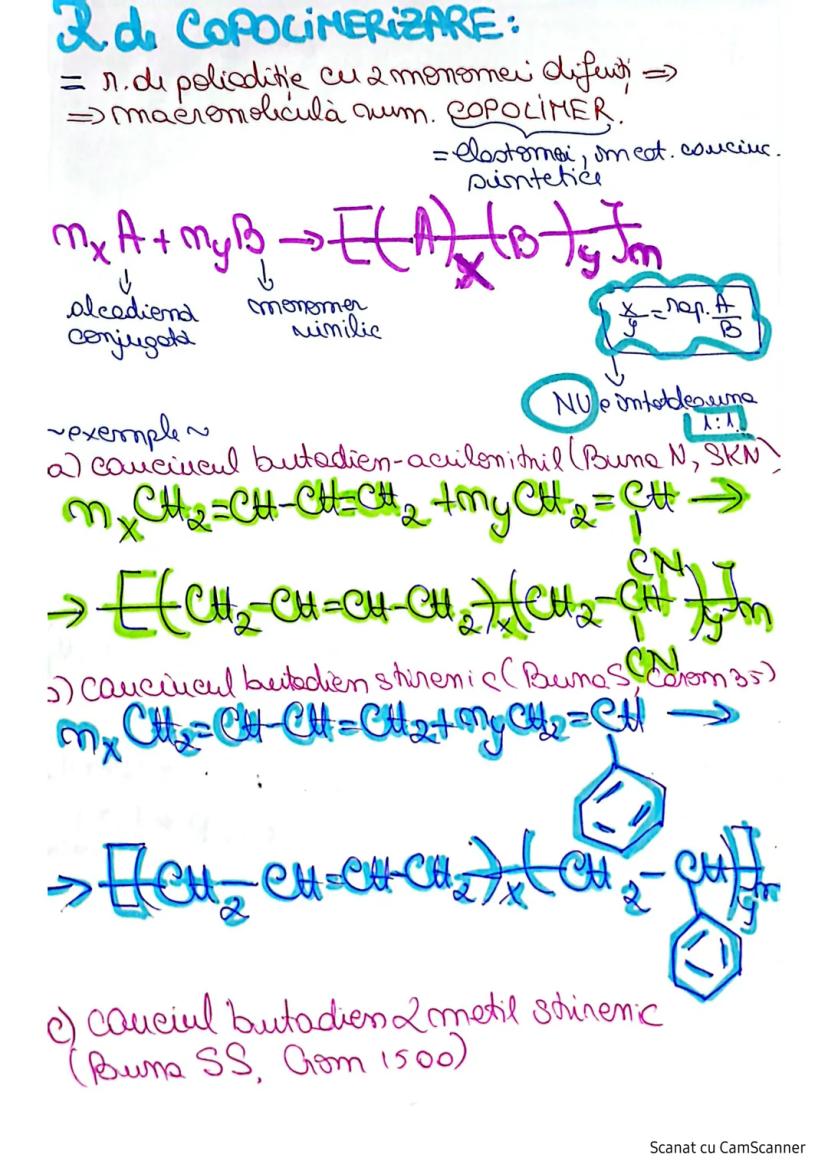 R. de COPOLIMERIZARE:
= r. de poliadiție cu 2 monomeri diferiți =>
=> macromoleculă num. COPOLIMER.
= elastomeri, în cat. cauciuc.
sintetice
nₓA + nᵧB → [(A)ₓ(B)ᵧ]ₙ
alcadienă
conjugată
monomer
vinilic
x/y = rap. A/B
NU e întotdeauna
1:1.
~exemple~
a) cauciucul butadien-acrilonitril (Buna N, SKN)
nₓCH₂=CH-CH=CH₂ + nᵧCH₂=CH →
CN
→ [(CH₂-CH=CH-CH₂)ₓ(CH₂-CH)ᵧ]ₙ
CN
b) cauciucul butadien stirenic (Buna S, Carom 35)
nₓCH₂=CH-CH=CH₂ + nᵧCH₂=CH →
→ [(CH₂-CH=CH-CH₂)ₓ(CH₂-CH)ᵧ]ₙ
c) cauciul butadien α metil stirenic
(Buna SS, Crom 1500)
Scanat cu CamScanner